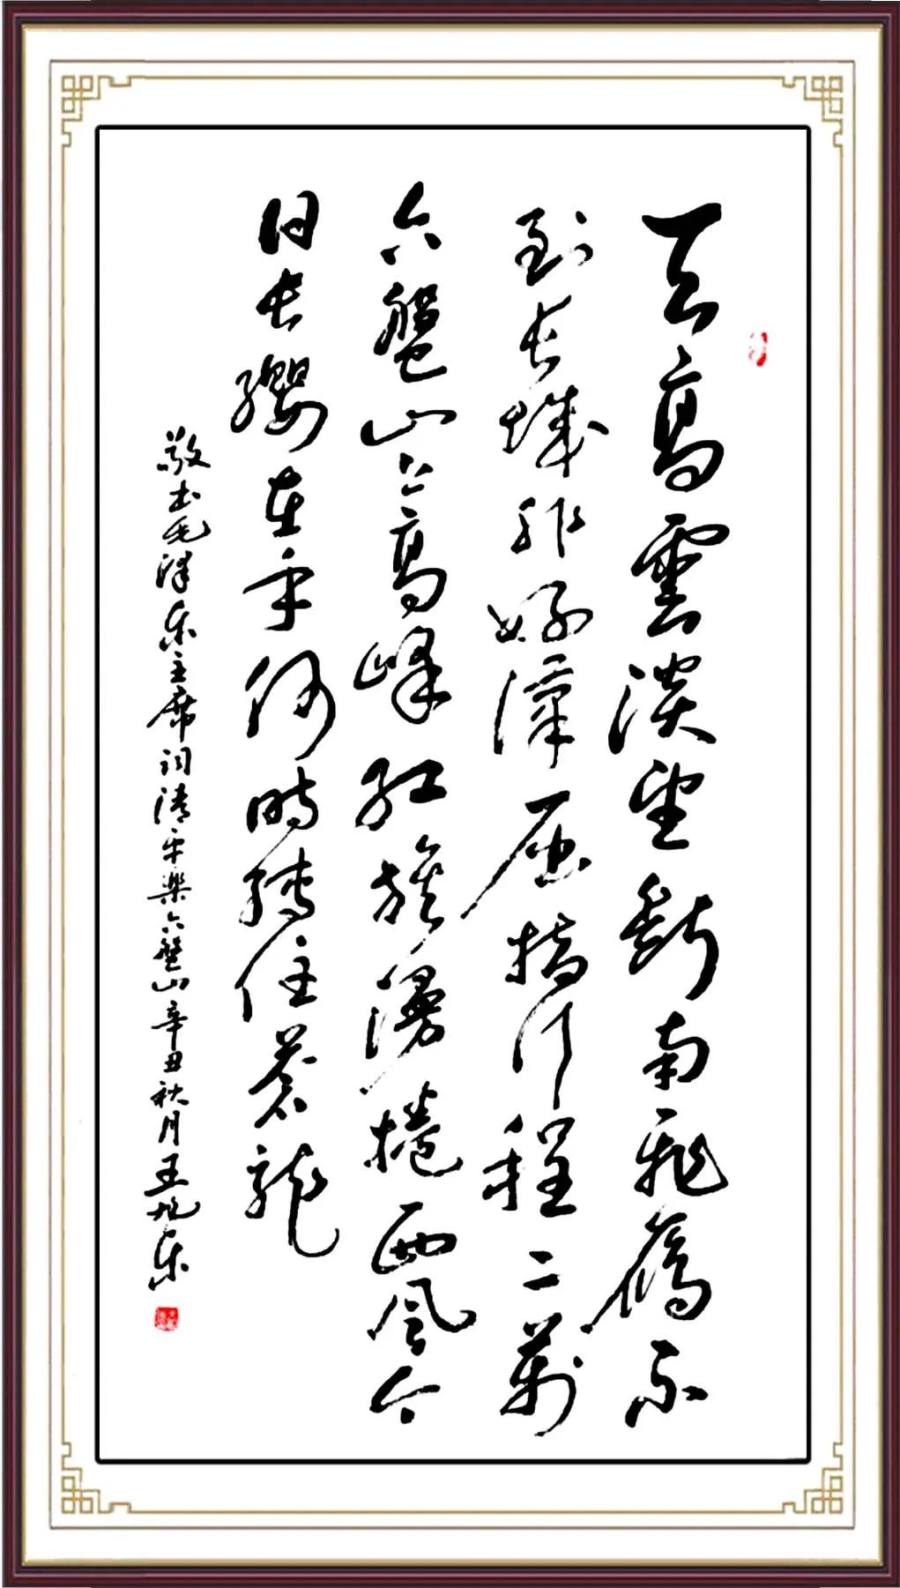 天高雲淡望斷南飛雁不
到長城非好漢屈指行程二萬
六盤山上高峰紅旗漫捲西風今
日長纓在手何時縛住蒼龍
敬书毛泽东主席词清平樂六盤山辛丑秋月王旭东